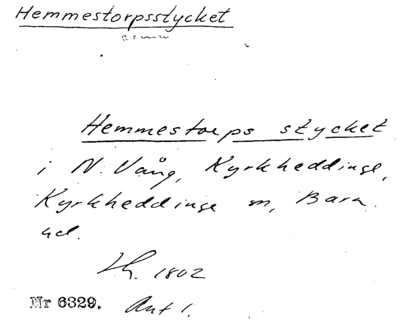 Hemmestorpsstycket
Hemmestorps stycket
i N. Vång, Kyrkheddinge,
Kyrkheddinge sn, Bara
hd.
1802
Nr 6329. Akt 1.